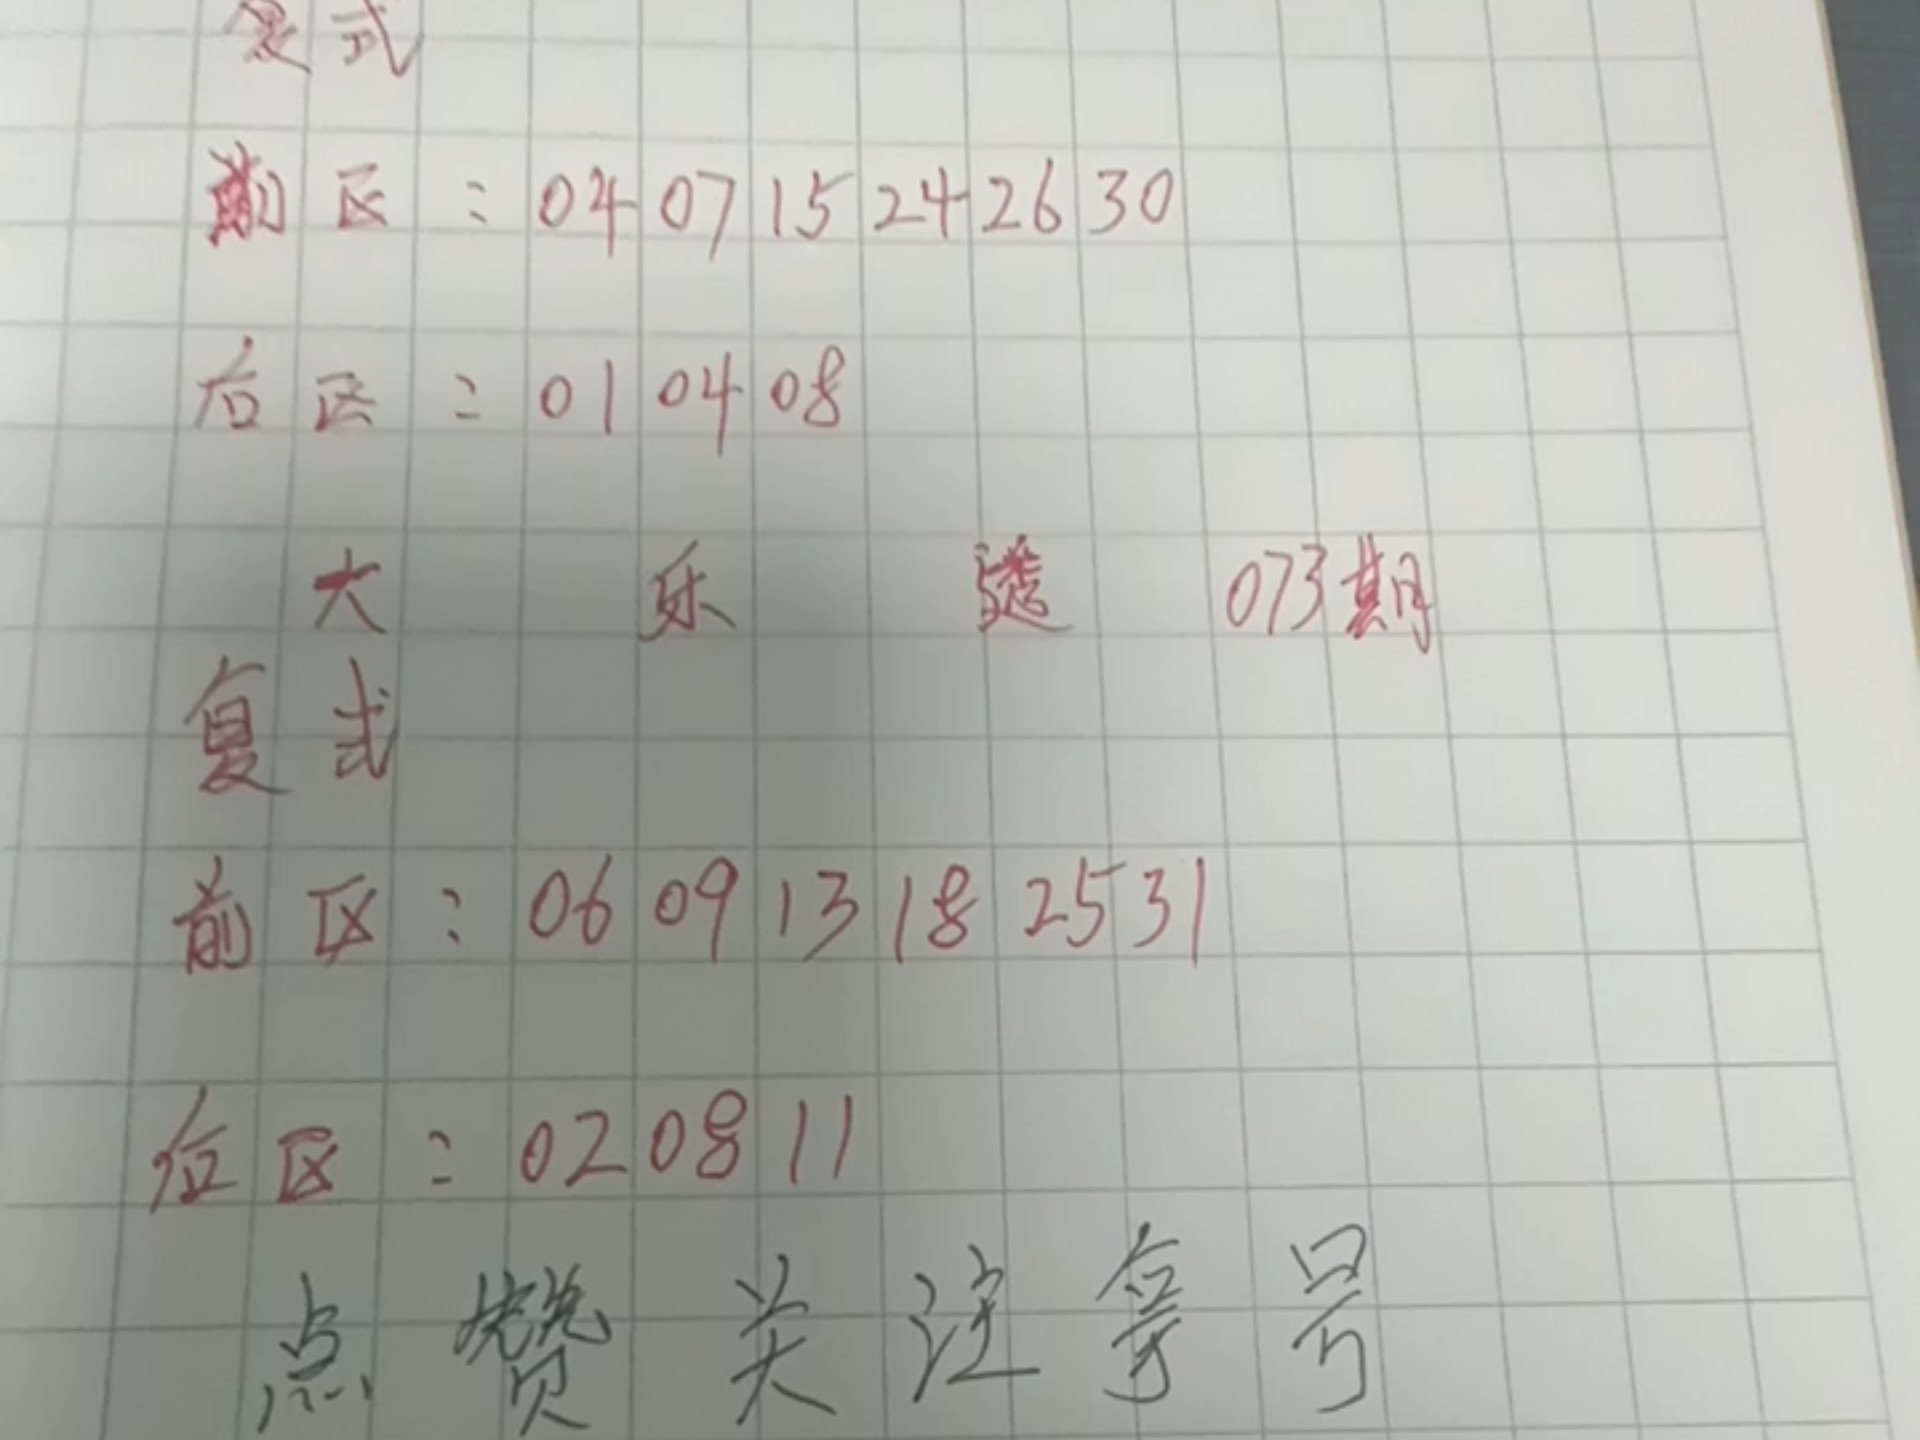 复式
前区:04 07 15 24 26 30
后区:01 04 08
大乐透 073期
复式
前区:06 09 13 18 25 31
后区:02 08 11
点赞关注拿号